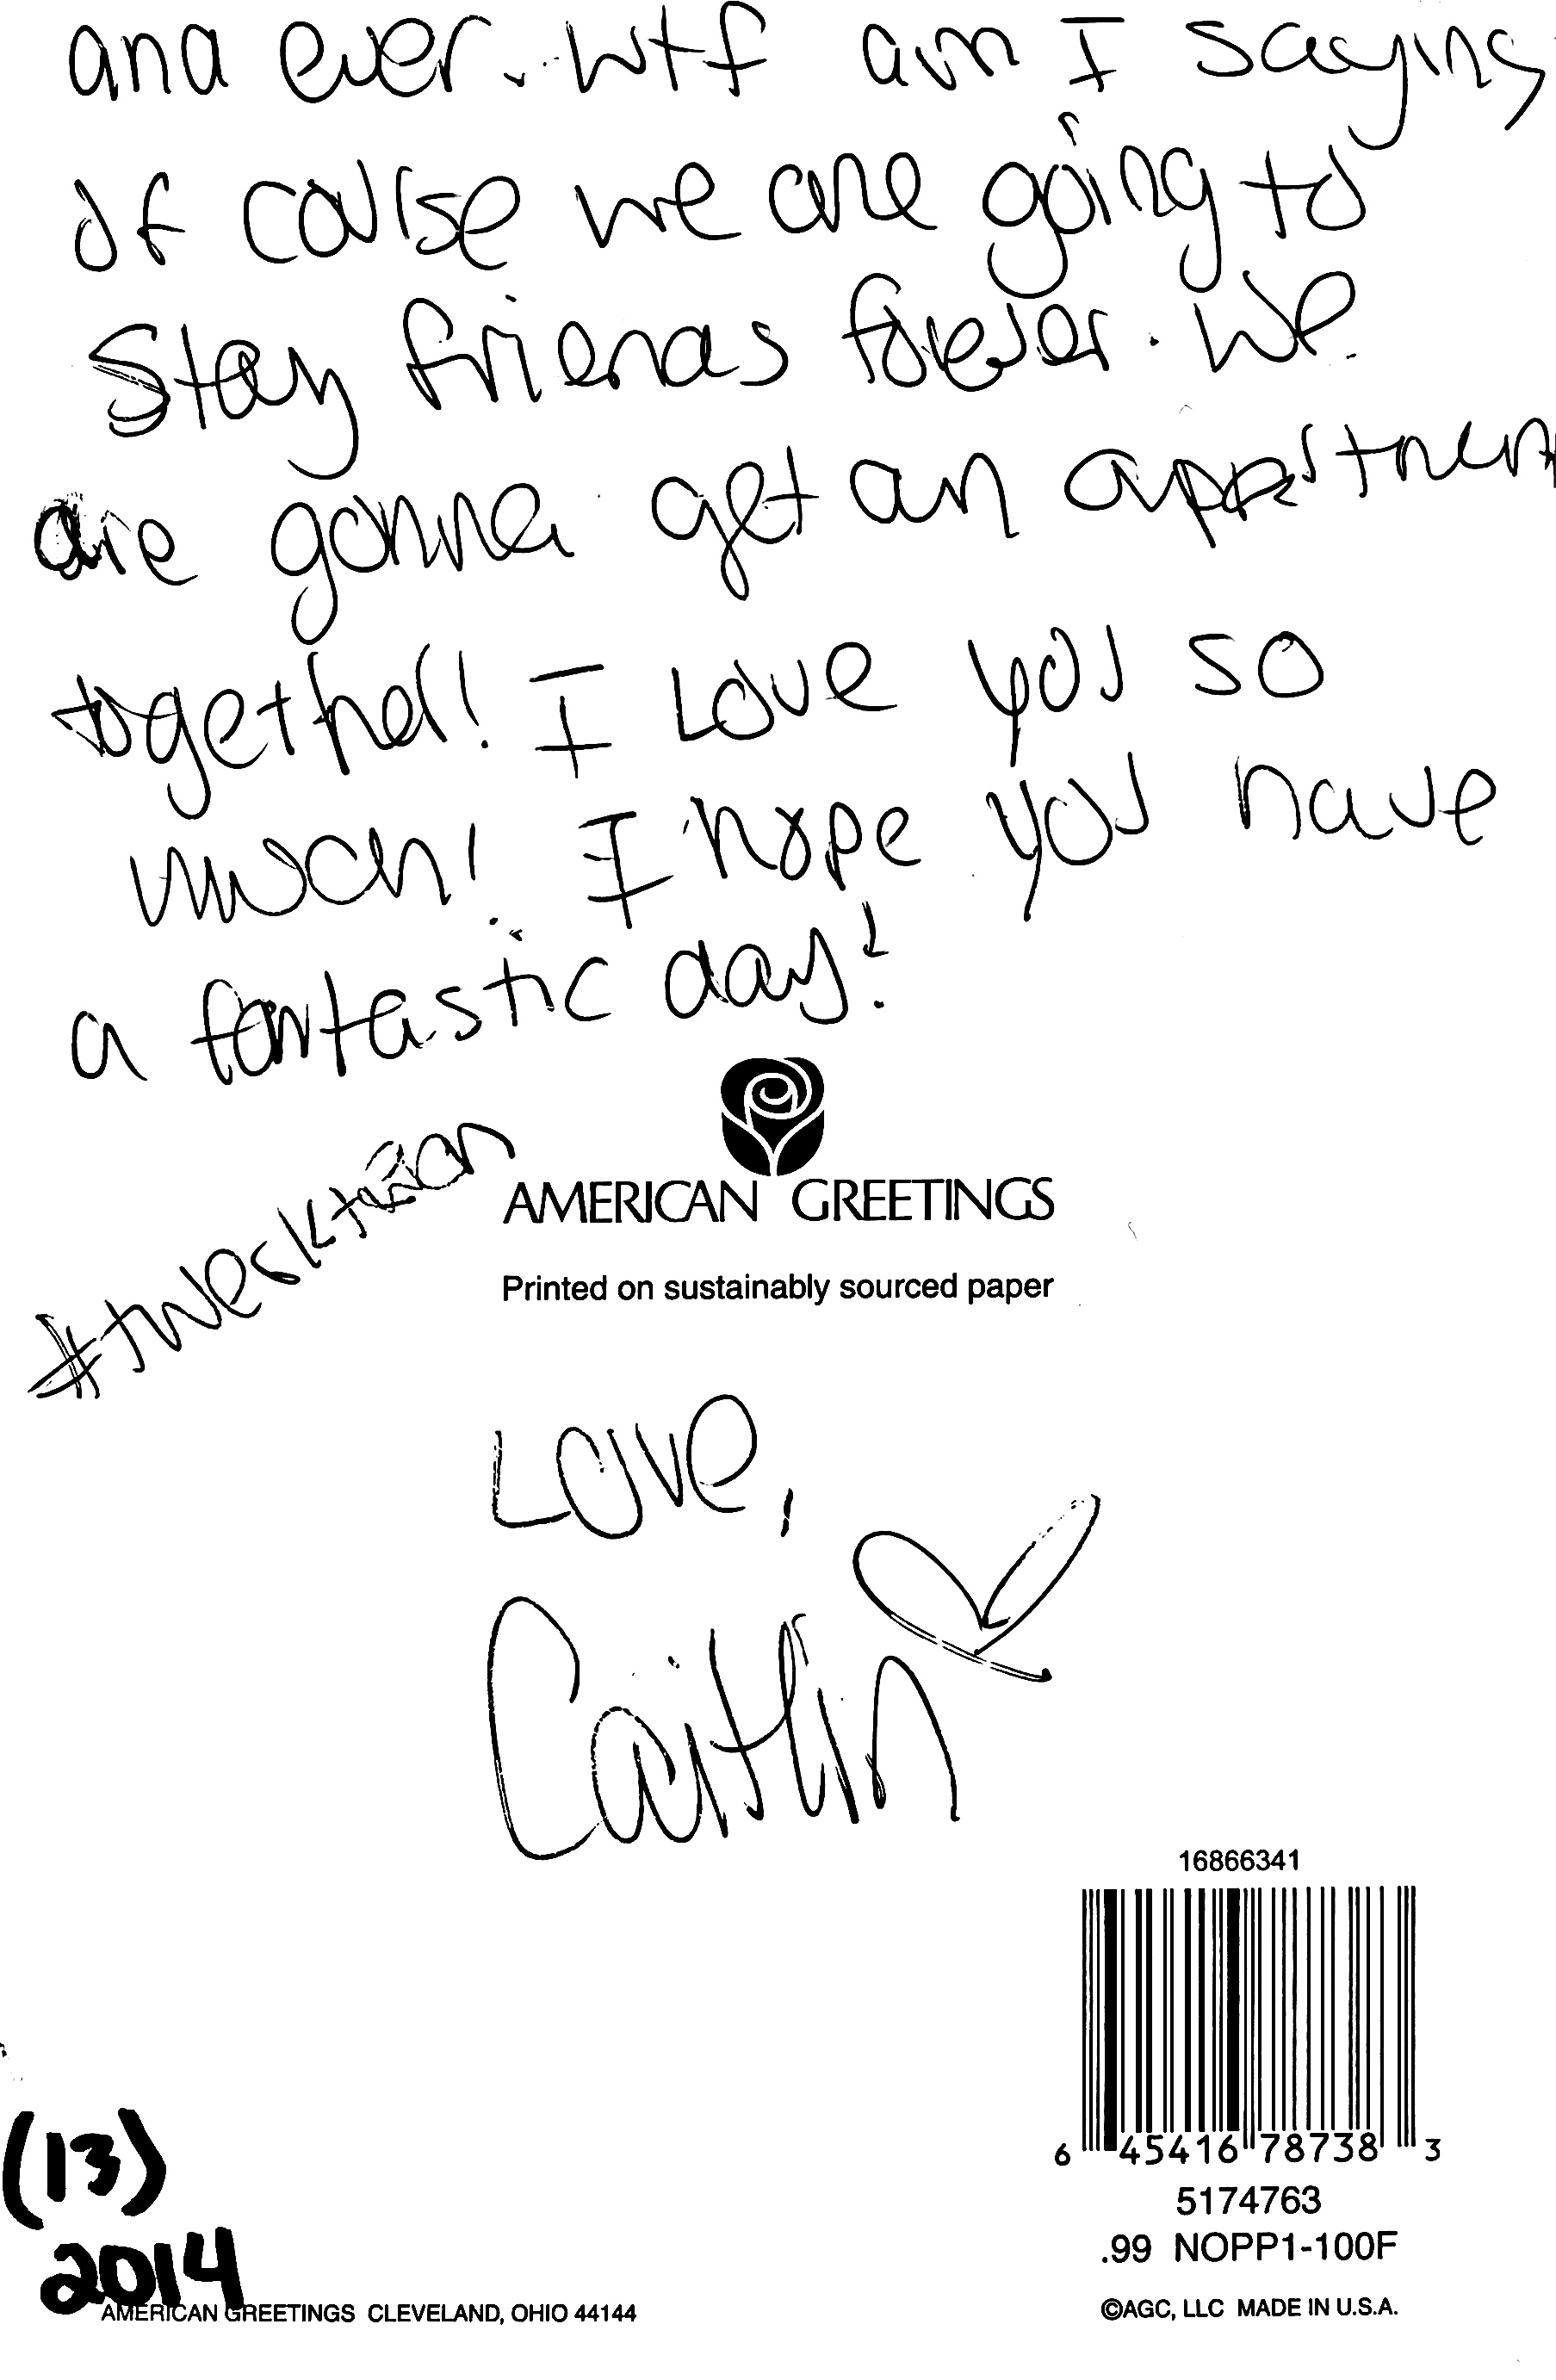 and ever. Wtf am I saying
of course we are going to
stay friends forever. We
are gonna get an appartment
together! I love you so
much! I hope you have
a fantastic day!
AMERICAN GREETINGS
Printed on sustainably sourced paper
Love,
Caitlin
16866341
6 45416 78738 3
5174763
.99 NOPP1-100F
(13)
2014
AMERICAN GREETINGS CLEVELAND, OHIO 44144
©AGC, LLC MADE IN U.S.A.